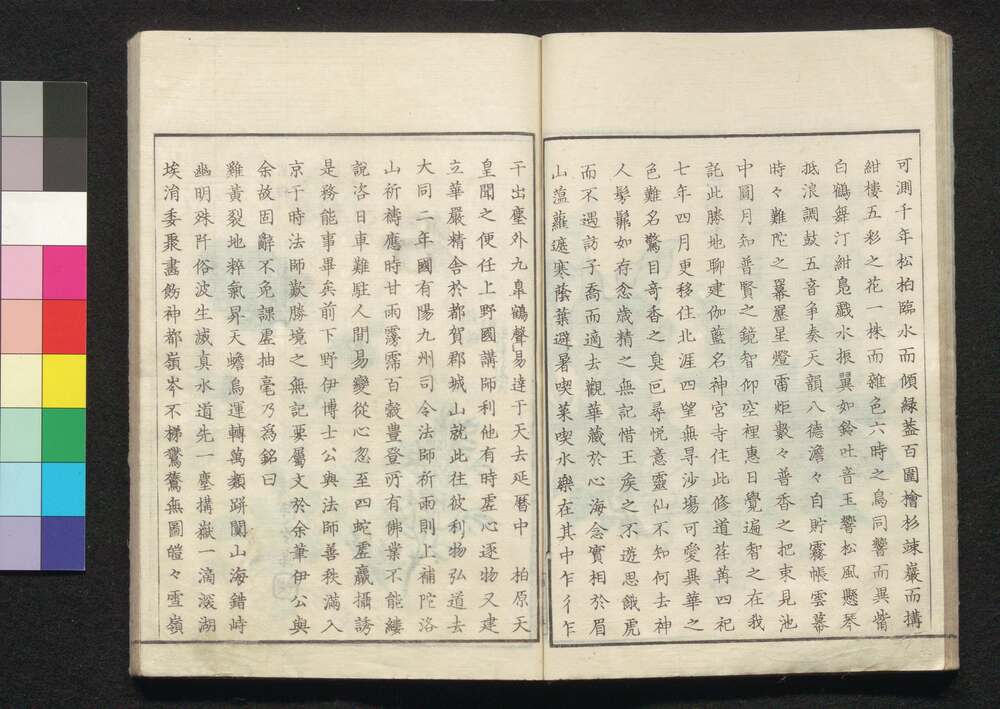 可測千年松柏臨水而傾緑蓋百圍檜杉竦巖而搆
紺樓五彩之花一株而雜色六時之鳥同響而異觜
白鶴舞汀紺鳧戲水振翼如鈴吐音玉響松風懸琴
抵浪調鼓五音争奏天韻八德澹々自貯霧帳雲幕
時々難陀之羃歷星燈雷炬數々普香之把束見池
中圓月知普賢之鏡智仰空裡惠日覺遍智之在我
託此勝地聊建伽藍名神宮寺住此修道荏苒四祀
七年四月更移住北涯四望無㝵沙場可愛異華之
色難名驚目奇香之臭叵尋悦意靈仙不知何去神
人髣髴如存忿歳精之無記惜王矦之不遊思餓虎
而不遇訪子喬而適去觀華藏於心海念實相於眉
山蒀蘿遮寒蔭葉避暑喫菜喫水樂在其中乍彳乍
亍出塵外九皐鶴聲易達于天去延暦中 柏原天
皇聞之便任上野國講師利他有時虚心逐物又建
立華嚴精舎於都賀郡城山就此往彼利物弘道去
大同二年國有陽九州司令法師祈雨則上補陀洛
山祈禱應時甘雨霶霈百穀豊登所有佛業不能縷
說咨日車難駐人間易變從心忽至四蛇虚羸攝誘
是務能事畢矣前下野伊博士公與法師善秩滿入
京于時法師歎勝境之無記要屬文於余筆伊公與
余故固辭不免課虚抽毫乃爲銘曰
雞黄裂地粹氣昇天蟾烏運轉萬類跰闐山海錯峙
幽明殊阡俗波生滅真水道先一塵搆嶽一滴深湖
埃涓委聚畫飾神都嶺岑不梯鸑鷟無圖皚々雪嶺